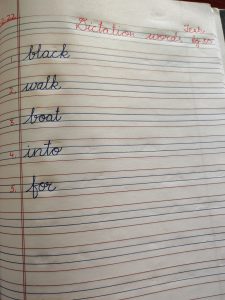 Dictation words
1. black
2. walk
3. boat
4. into
5. for